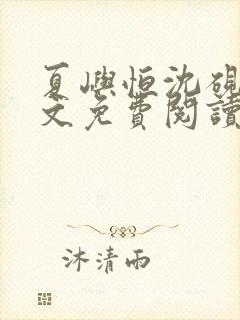 夏嶼恒沈硯
文免費閱讀
沐清雨